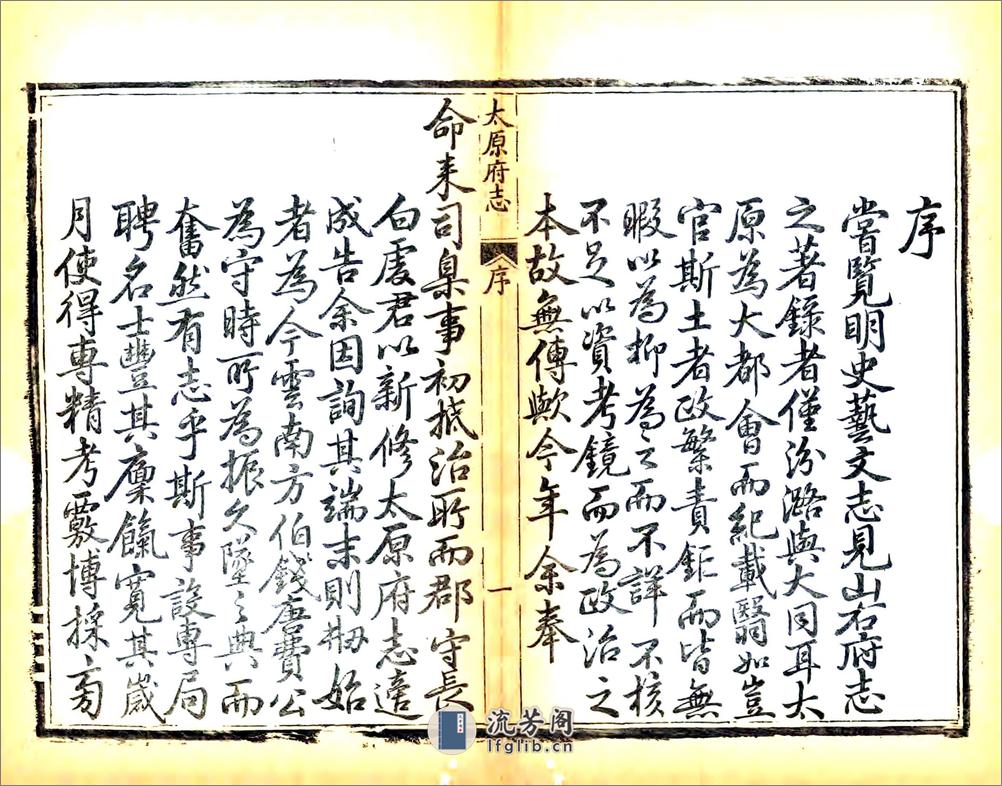 序
嘗覽明史藝文志見山右府志
之著錄者僅汾潞與大同耳太
原為大都會而紀載翳如豈
官斯土者政繁責鉅而皆無
暇以為抑為之而不詳不核
不足以資考鏡而為政治之
本故無傳歟今年余奉
太原府志
序
一
命来司臬事初抵治所而郡守長
白虔君以新修太原府志適
成告余因詢其端末則剏始
者為今雲南方伯錢唐費公
為守時所為振久墜之典而
奮然有志乎斯事設專局
聘名士豐其廩餼寬其歲
月使得專精考覈博採旁
流芳阁
lfglib.cn